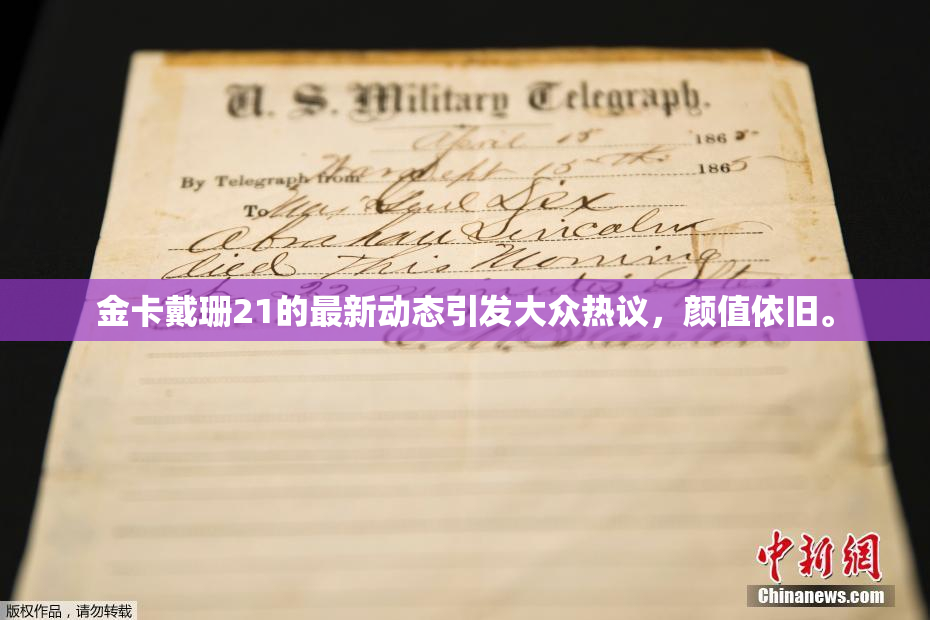 U. S. Military Telegraph.
April 15 1865
By Telegraph from War Dept 15th 1865
To Maj Genl Dix
Abraham Lincoln
died This Morning
at 22 minutes after
金卡戴珊21的最新动态引发大众热议，颜值依旧。
E. M. Stanton
中新網
Chinanews.com
版权作品，请勿转载